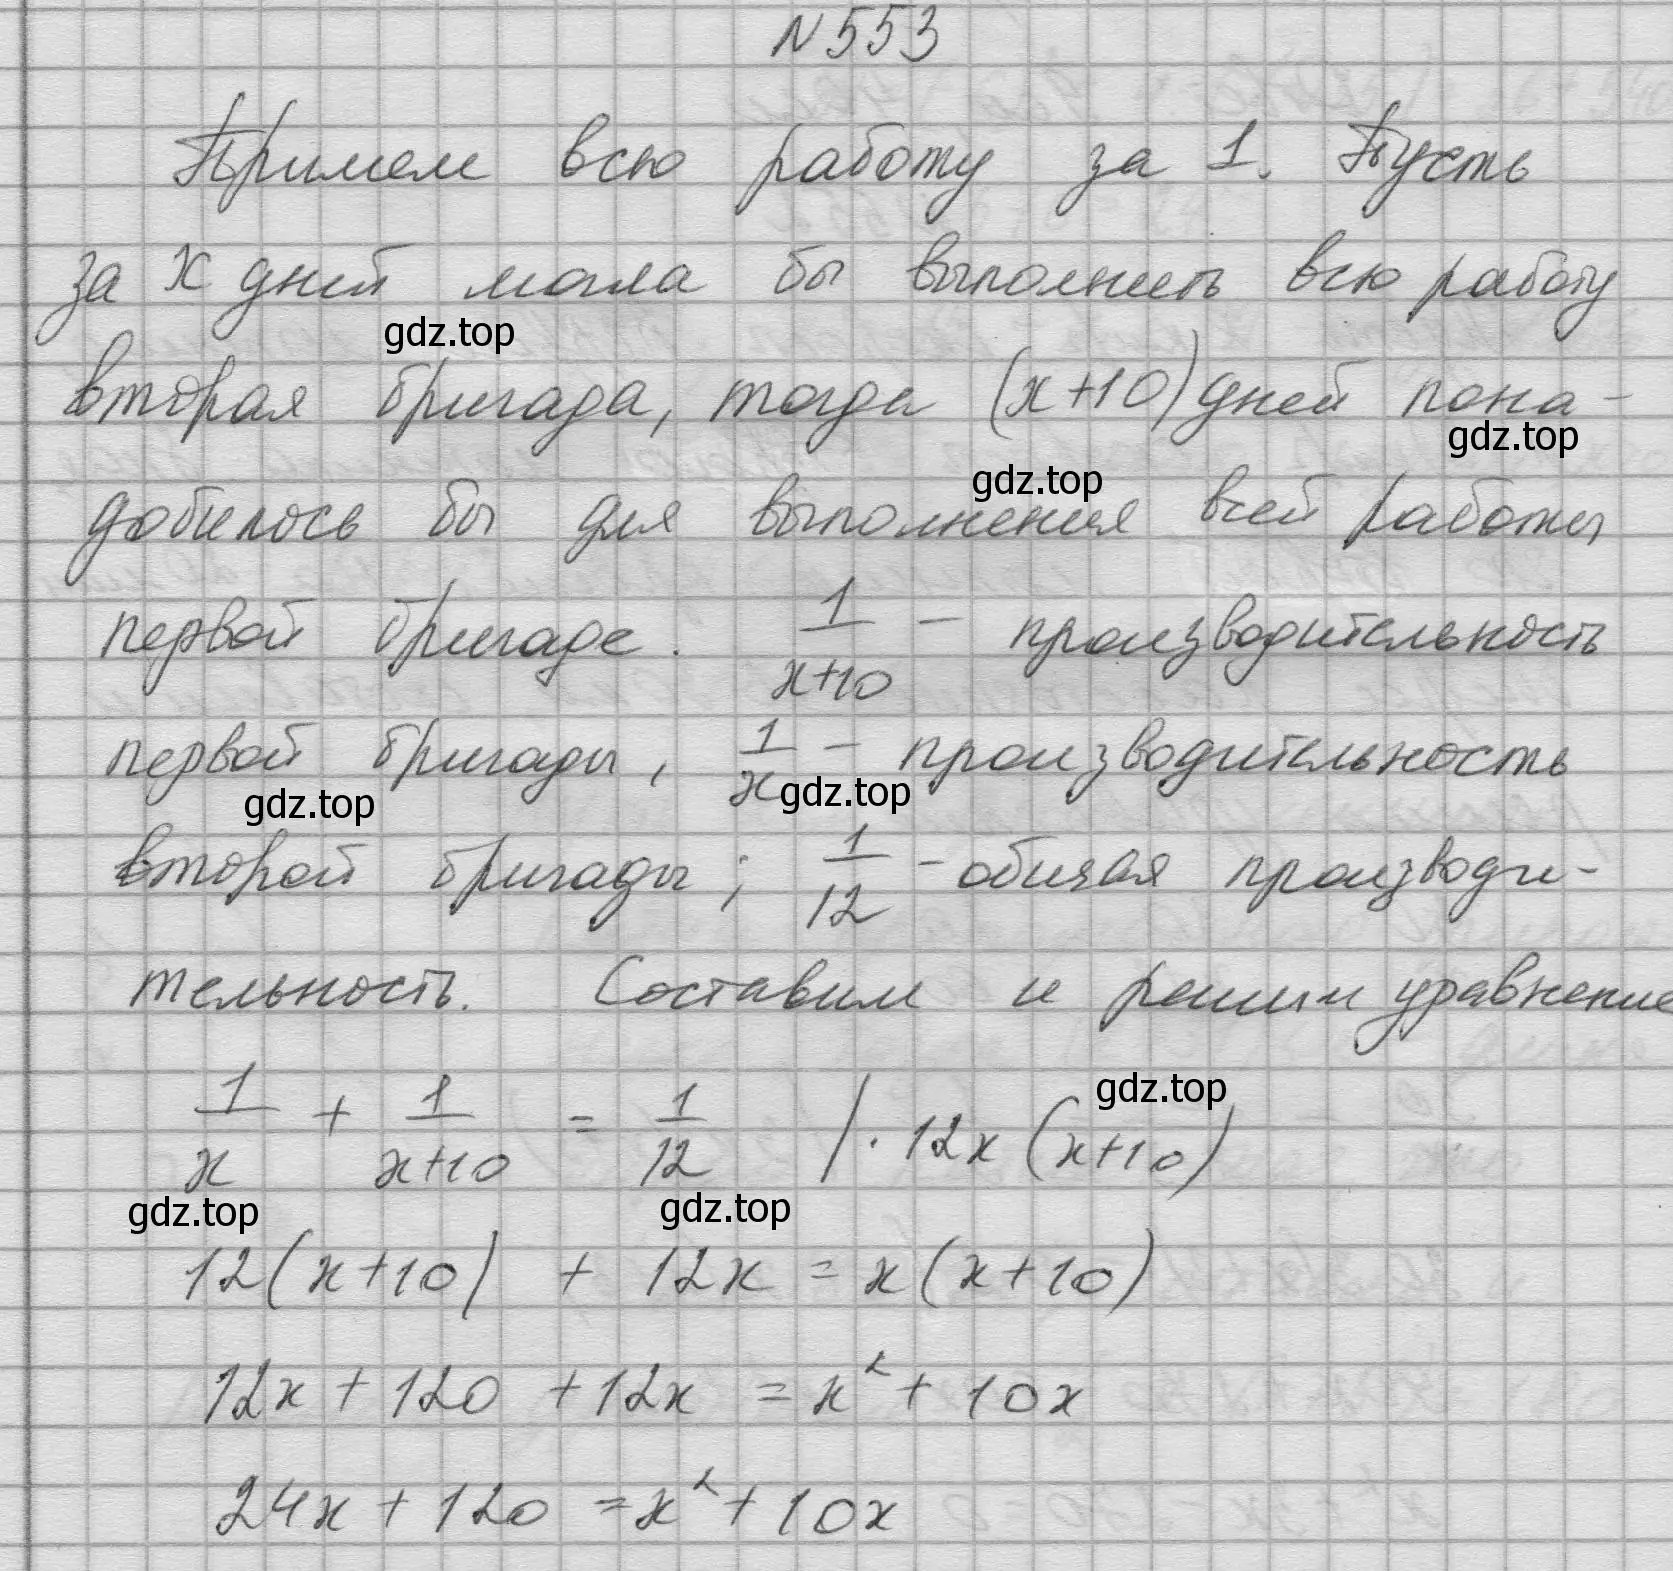 N553
Примем всю работу за 1. Пусть
за x дней могла бы выполнить всю работу
gdz.top
вторая бригада, тогда (x+10) дней пона-
gdz.top
gdz.top
добилось бы для выполнения всей работы
первой бригаде. 1/(x+10) – производительность
первой бригады, 1/x – производительность
gdz.top gdz.top
второй бригады; 1/12 – общая производи-
тельность. Составим и решим уравнение
gdz.top
1/x + 1/(x+10) = 1/12 /·12x(x+10)
gdz.top gdz.top
12(x+10) + 12x = x(x+10)
12x + 120 + 12x = x² + 10x
24x + 120 = x² + 10x